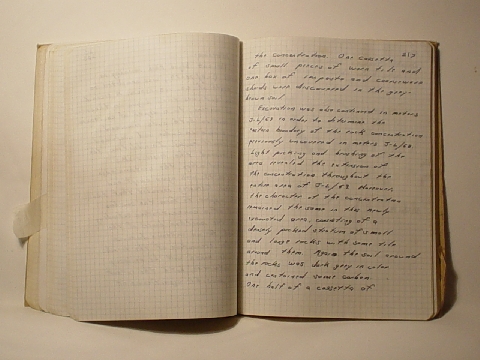 217
the concentration. One cassetta
of small pieces of worn tile and
one box of impasto and coarseware
sherds were discovered in the grey-
brown soil.
Excavation was also continued in meters
J-6/63 in order to determine the
boundary of the rock concentration
previously uncovered in meters
Light picking and brushing of the
area revealed the extension of
the concentration throughout the
entire area of J-6/63. Moreover,
the character of the concentration
remained the same in this newly
excavated area, consisting of a
densely packed stratum of small
and large rocks with some tile
around them. The soil around
the rocks was dark grey in color
and contained some carbon.
One half of a cassetta of